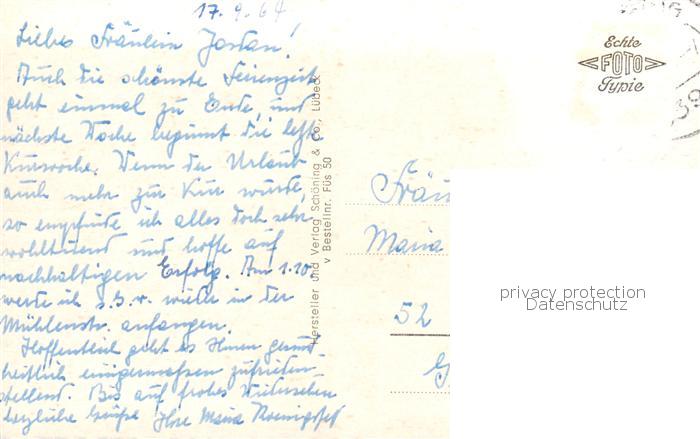 17.9.64
Liebes Fräulein Jordan!
Auch die schönste Ferienzeit
geht einmal zu Ende, und
nächste Woche beginnt die letzte
Kurwoche. Wenn der Urlaub
auch mehr zur Kur wurde,
so empfinde ich alles doch sehr
wohltuend und hoffe auf
nachhaltigen Erfolg. Am 1.10.
werde ich s.G.w. wieder in der
Mühlenstr. anfangen.
Hoffentlich geht es Ihnen gesund-
heitlich einigermaßen zufrieden-
stellend. Bis auf frohes Wiedersehen
herzliche Grüße Ihre Maria
Hersteller und Verlag Schöning & Co., Lübeck
v Bestellnr. Füs 50
Echte
FOTO
Typie
Fräu
Maria
52
privacy protection
Datenschutz